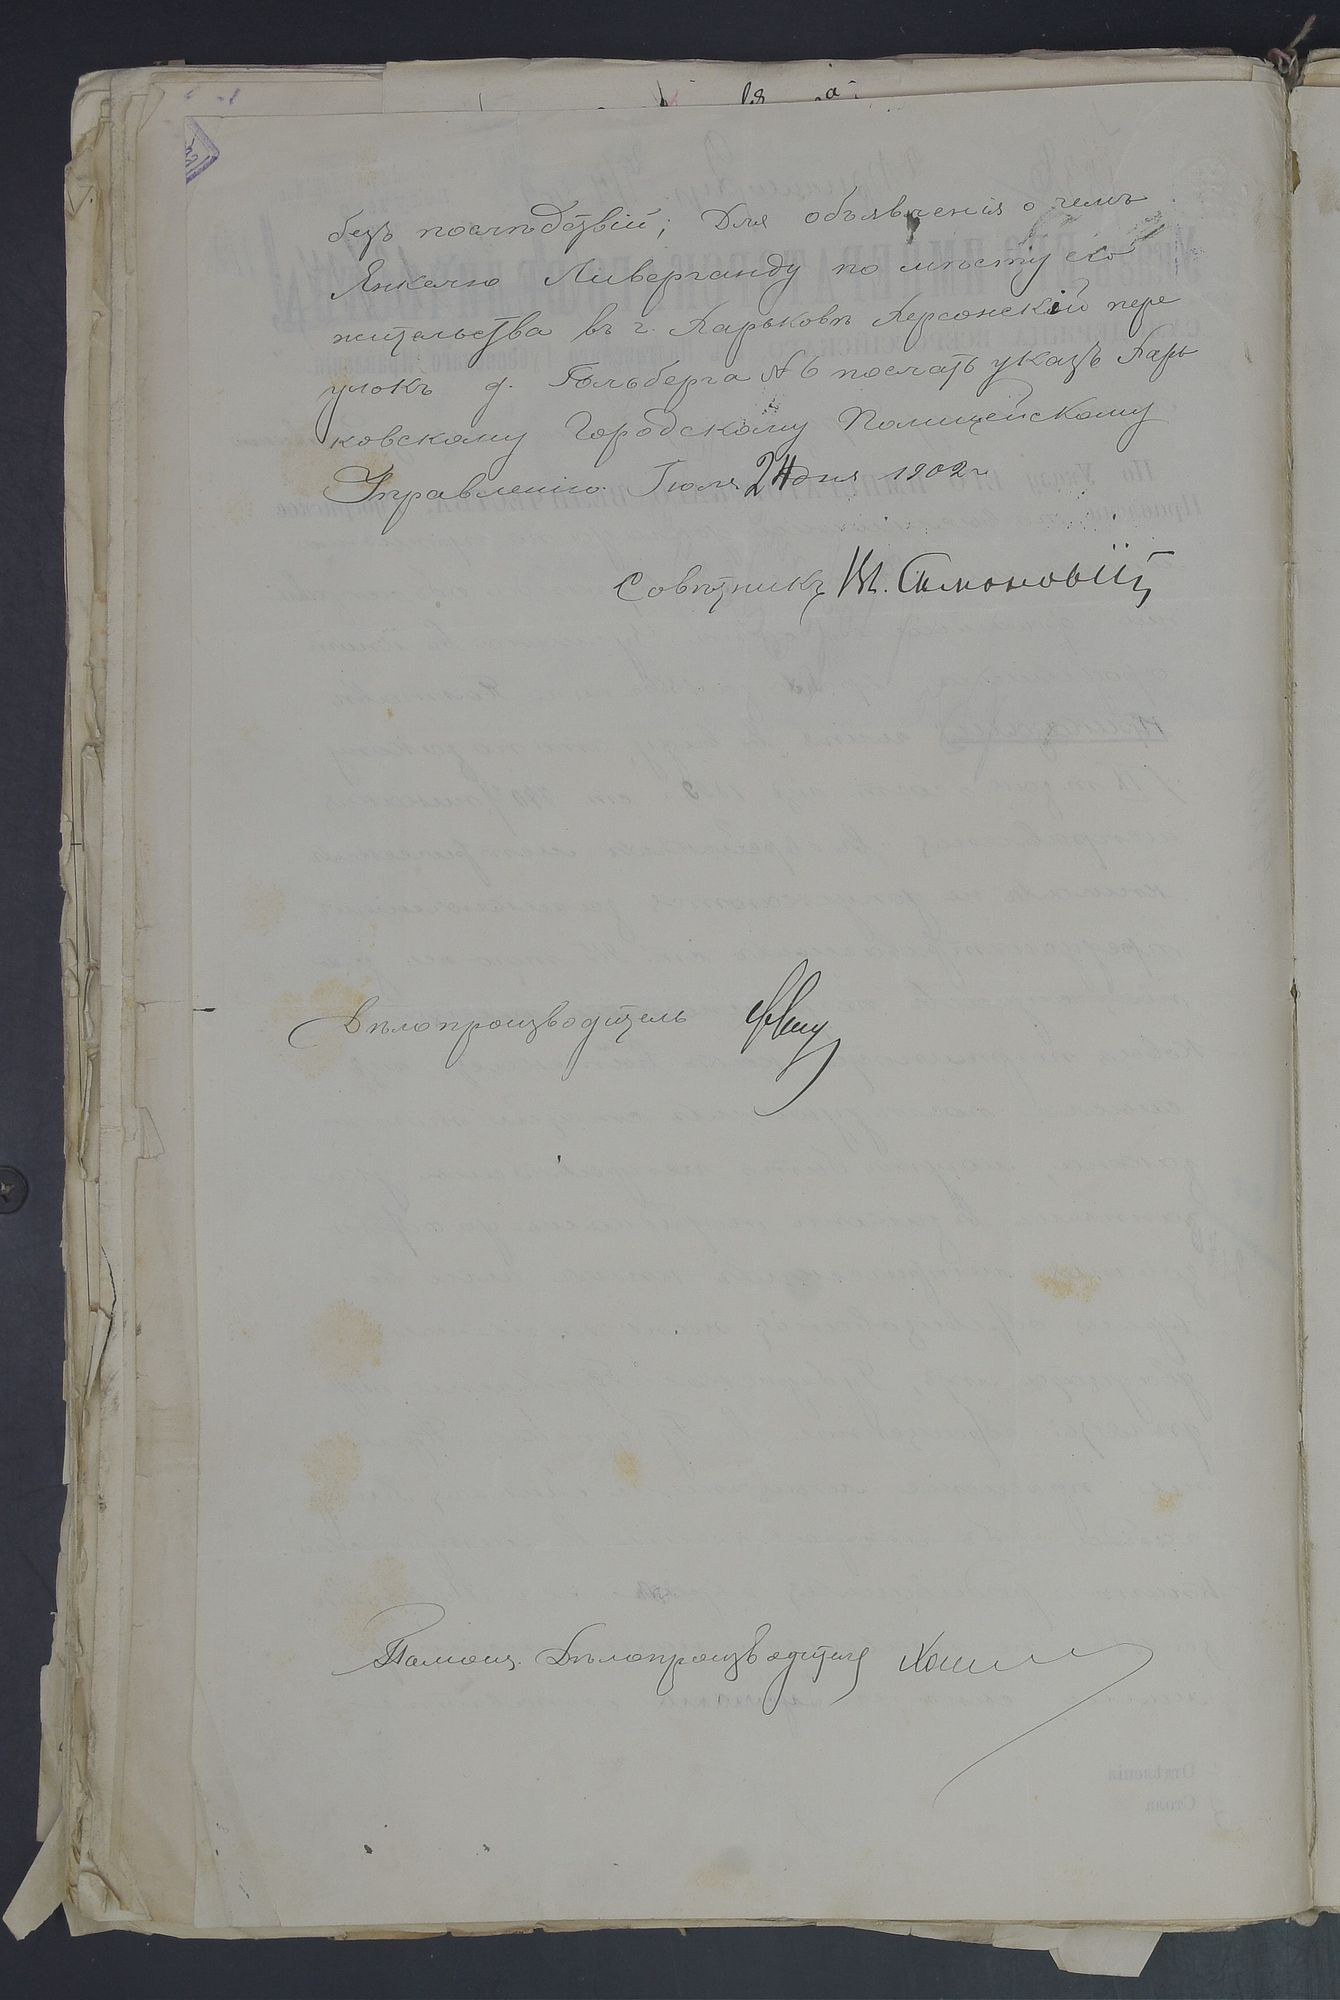 безъ послѣдствій; Для объявленія о чемъ
Янкелю Ливерганду по мѣсту его
жительства въ г. Харьковѣ Херсонскій пере
улокъ д. Гольберга № 6 послать указъ Харь
ковскому Городскому Полицейскому
Управленію. Іюля 24 дня 1902 г.
Совѣтникъ Вл. Симоновичъ
Дѣлопроизводитель
Помощ. Дѣлопроизводителя